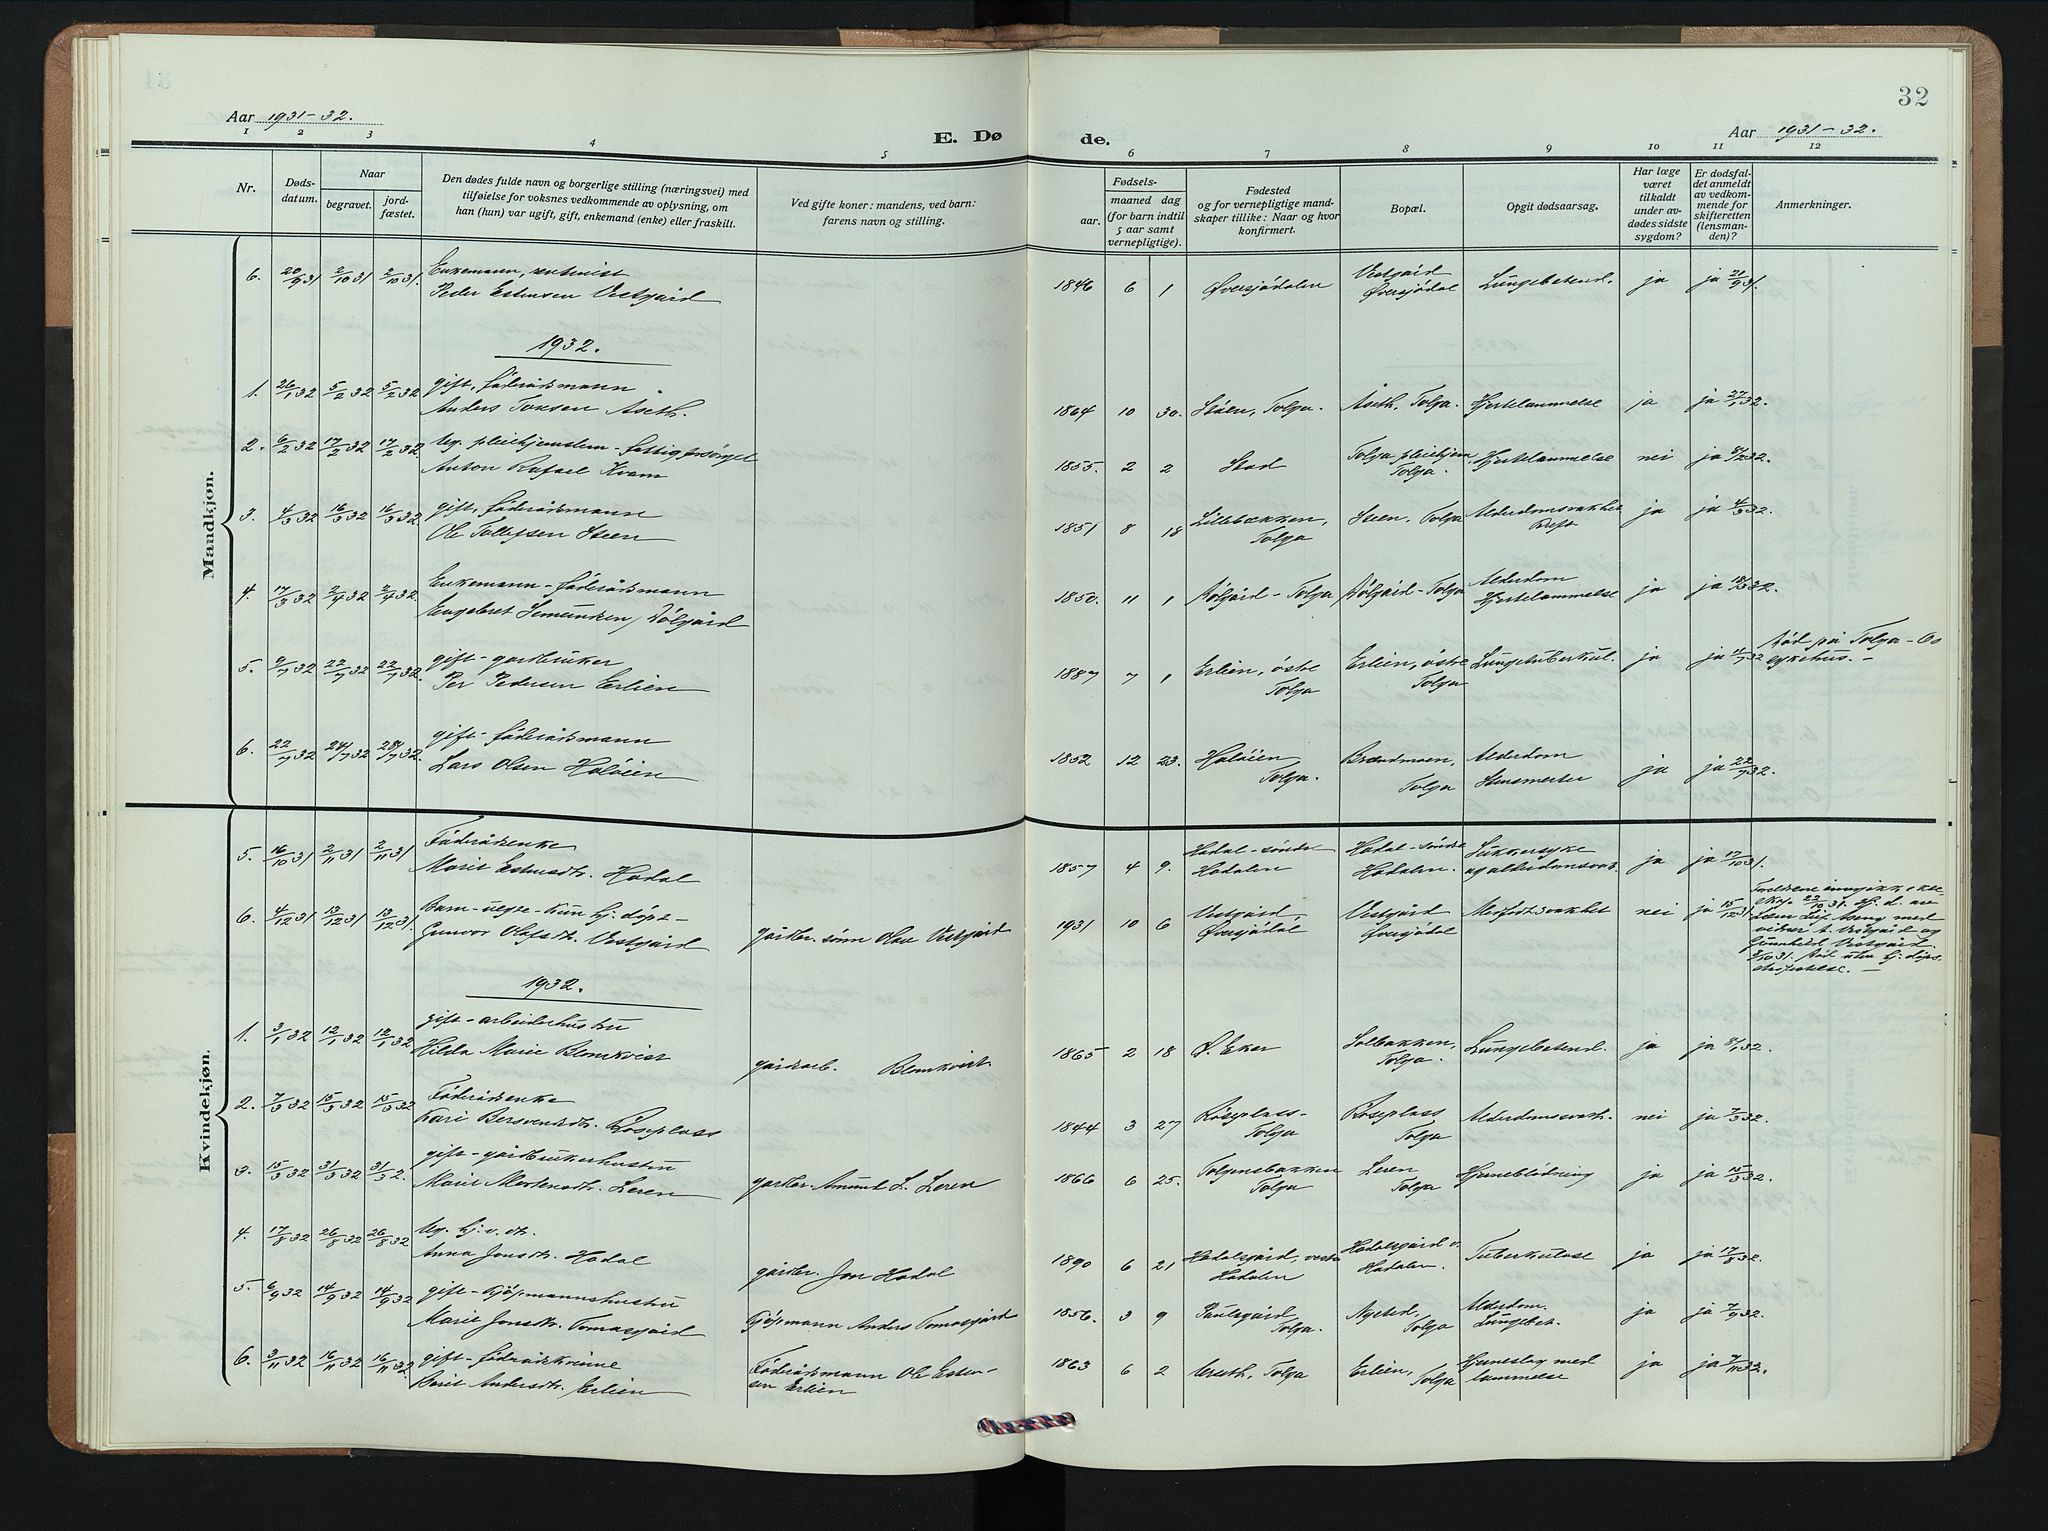 32
Aar 1931-32.
E. Dø
de.
Aar 1931-32.
1 2 3 4 5 6 7 8 9 10 11 12
Nr.
Døds-
datum.
Naar
begravet.
jord-
fæstet.
Den dødes fulde navn og borgerlige stilling (næringsvei) med
tilføielse for voksnes vedkommende av oplysning, om
han (hun) var ugift, gift, enkemand (enke) eller fraskilt.
Ved gifte koner: mandens, ved barn:
farens navn og stilling.
Fødsels-
aar.
maaned dag
(for barn indtil
5 aar samt
vernepligtige).
Fødested
og for vernepligtige mand-
skaper tillike: Naar og hvor
konfirmert.
Bopæl.
Opgit dødsaarsag.
Har læge
været
tilkaldt
under av-
dødes sidste
sygdom?
Er dødsfal-
det anmeldt
av vedkom-
mende for
skifteretten
(lensman-
den)?
Anmerkninger.
Mandkjøn.
6. 20/9 31 2/10 31 2/10 31 Enkemann, rentenist
Peder Estensen Vestgård
1846 6 1 Øversjødalen Vestgård Øversjødal Lungebetend. ja ja 21/9 31.
1932.
1. 26/1 32 5/2 32 5/2 32 gift, föderådsmann
Anders Torsen Åseth.
1864 10 30. Støen, Tolga. Åseth, Tolga. Hjertelammelse ja ja 27/1 32.
2. 6/2 32 17/2 32 17/2 32. Ug. pleiehjemslem - fattigforsørget
Anton Rafael Kvam
1855. 2 2 Stad Tolga pleiehjem, Tolga. Hjertelammelse nei ja 8/2 32.
3. 4/3 32 16/3 32 16/3 32 gift, föderådsmann
Ole Tollefsen Steen
1851 8 18 Lillebækken, Tolga Steen, Tolga Alderdomsvakhet ja ja 4/3 32.
4. 17/3 32 2/4 32 2/4 32 Enkemann - föderådsmann
Engebret Semundsen Dølgård
1850. 11 1 Dølgård - Tolga Dølgård - Tolga Alderdom Hjertelammelse ja ja 18/3 32.
5. 2/7 32 22/7 32 22/7 32. gift - gardbruker
Per Pedersen Erlien
1887 7 1 Erlien, østre Tolga Erlien, østre Tolga Lungetuberkul. ja ja 4/7 32 Død på Tolga - Os
sykehus. -
6. 22/7 32 28/7 32 28/7 32. gift - föderådsmann
Lars Olsen Holøien
1852 12 23. Holøien Tolga. Brændmoen, Tolga Alderdom ja ja 22/7 32.
Kvindekjøn.
5. 16/10 31 2/11 31 2/11 31 Föderådsenke
Marit Estensdtr. Hodal
1857 4 9. Hodal - søndre Hodalen Hodal - søndre Hodalen. Sukkersyke og alderdomsvak. ja ja 17/10 31.
6. 4/12 31 13/12 31 13/12 31 Barn - uegte - kun hj. døpt -
Gunvor Olefsdtr. Vestgård
gårdbr. sønn Olav Vestgård
1931 10 6 Vestgård, Øversjødal Vestgård Øversjødal Medfødt svakhet nei ja 15/12 31
1932.
1. 3/1 32 12/1 32 12/1 32 gift - arbeiderhustru
Hilda Marie Blomkvist
gårdsarb. Blomkvist.
1865 2 18 Ø. Eker Solbakken, Tolga. Lungebetend. ja ja 8/1 32.
2. 7/3 32 15/3 32 15/3 32 Föderådsenke
Kari Bersvendsdtr. Røseplass
1844 3 27 Røseplass - Tolga Røseplass Tolga Alderdomsvakh. nei ja 7/3 32.
3. 15/3 32 31/3 32 31/3 2. gift - gårdbrukerhustru
Marit Mortensdtr. Leren
gardbr. Amund L. Leren
1866 6 25. Tolgensbakken Tolga Leren Tolga Hjerneblödning ja ja 15/3 32.
4. 17/8 32 26/8 32 26/8 32 Ug. hj. v. dtr.
Anna Jonsdtr. Hodal
gårdbr. Jon Hodal
1890 6 21 Hodalsgård, vestre Hodalen Hodalsgård v. Hodalen. Tuberkulose ja ja 17/8 32.
5. 6/9 32 14/9 32 14/9 32 gift - kjøpmannshustru
Marit Jonsdtr. Tomasgård
Kjøpmann Anders Tomasgård
1856. 3 9 Paulsgård, Tolga. Nysted, Tolga Alderdom. Lungebet. ja ja 7/9 32.
6. 3/11 32 16/11 32 16/11 32. gift - föderådskvinne
Berit Andersdtr. Erlien
Föderådsmann Ole Esten-
sen Erlien
1863 6 2 Urseth, Tolga Erlien, Tolga Hjerneslag med lammelse ja ja 7/11 32.